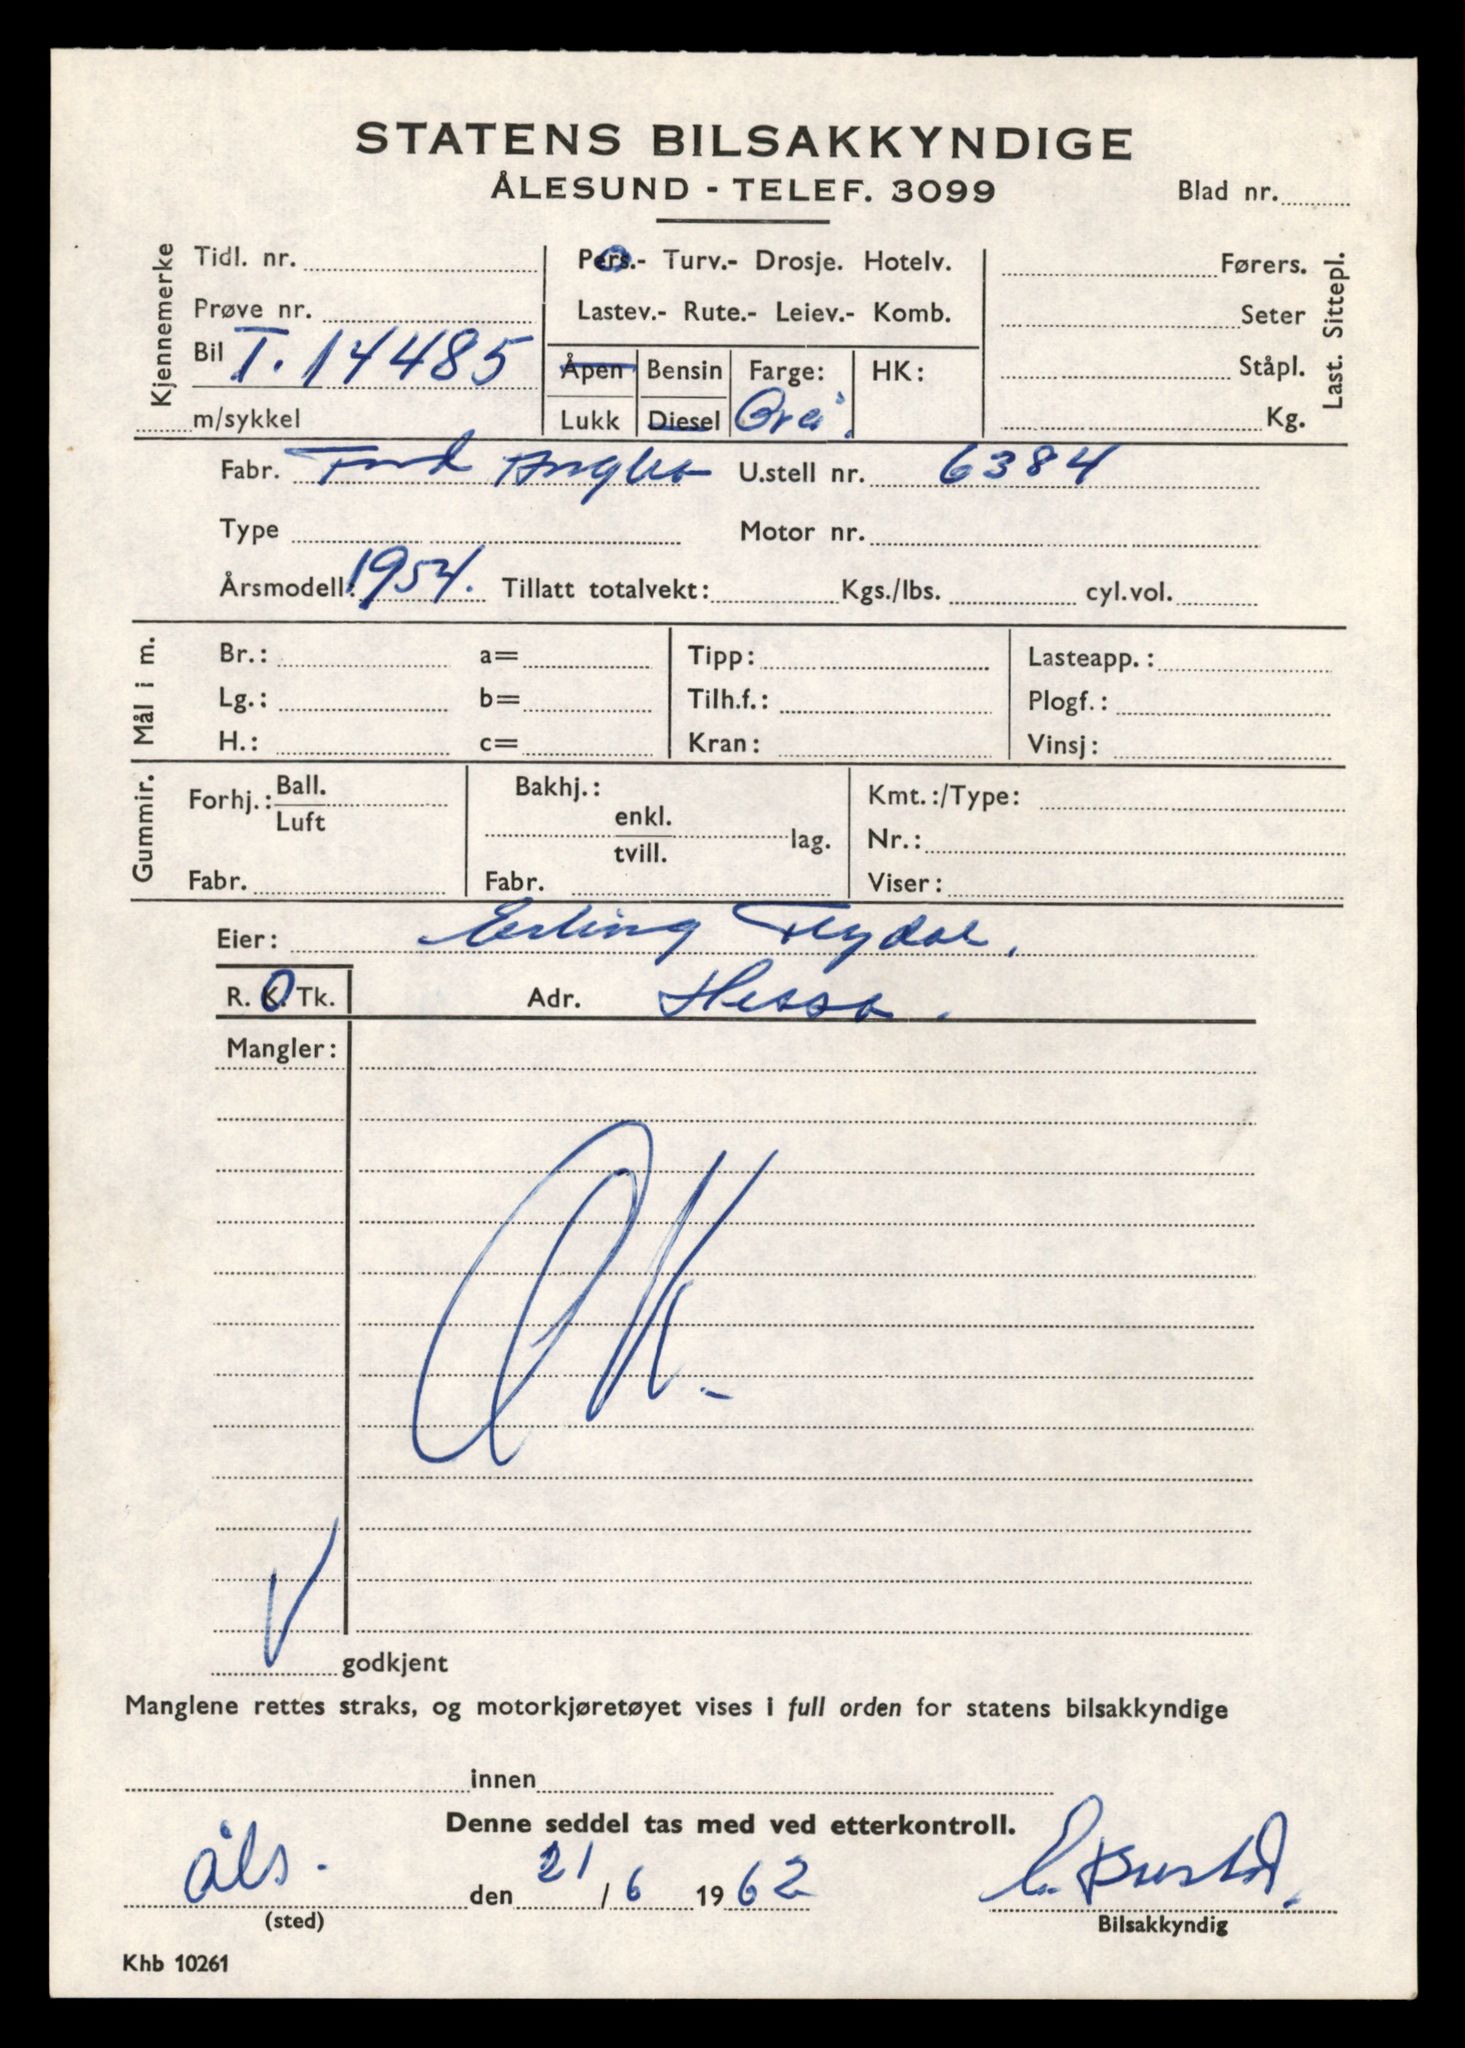 STATENS BILSAKKYNDIGE
ÅLESUND - TELEF. 3099
Blad nr.
Kjennemerke
Tidl. nr.
Prøve nr.
Bil T. 14485
m/sykkel
Pers.- Turv.- Drosje. Hotelv.
Lastev.- Rute.- Leiev.- Komb.
Åpen Bensin Farge: HK:
Lukk Diesel Grå.
Førers.
Seter
Ståpl.
Kg.
Last. Sittepl.
Fabr. Ford Anglia U.stell nr. 6384
Type Motor nr.
Årsmodell: 1954. Tillatt totalvekt: Kgs./lbs. cyl.vol.
Mål i m.
Br.: a= Tipp: Lasteapp.:
Lg.: b= Tilh.f.: Plogf.:
H.: c= Kran: Vinsj:
Gummir.
Forhj.: Ball.
Luft
Fabr.
Bakhj.:
enkl.
tvill. lag.
Fabr.
Kmt.:/Type:
Nr.:
Viser:
Eier: Erling Flydal.
R. K. Tk. Adr. Hessa.
Mangler:
OK.
godkjent
Manglene rettes straks, og motorkjøretøyet vises i full orden for statens bilsakkyndige
innen
Denne seddel tas med ved etterkontroll.
Åls. den 21/6 1962
(sted) Bilsakkyndig
Khb 10261